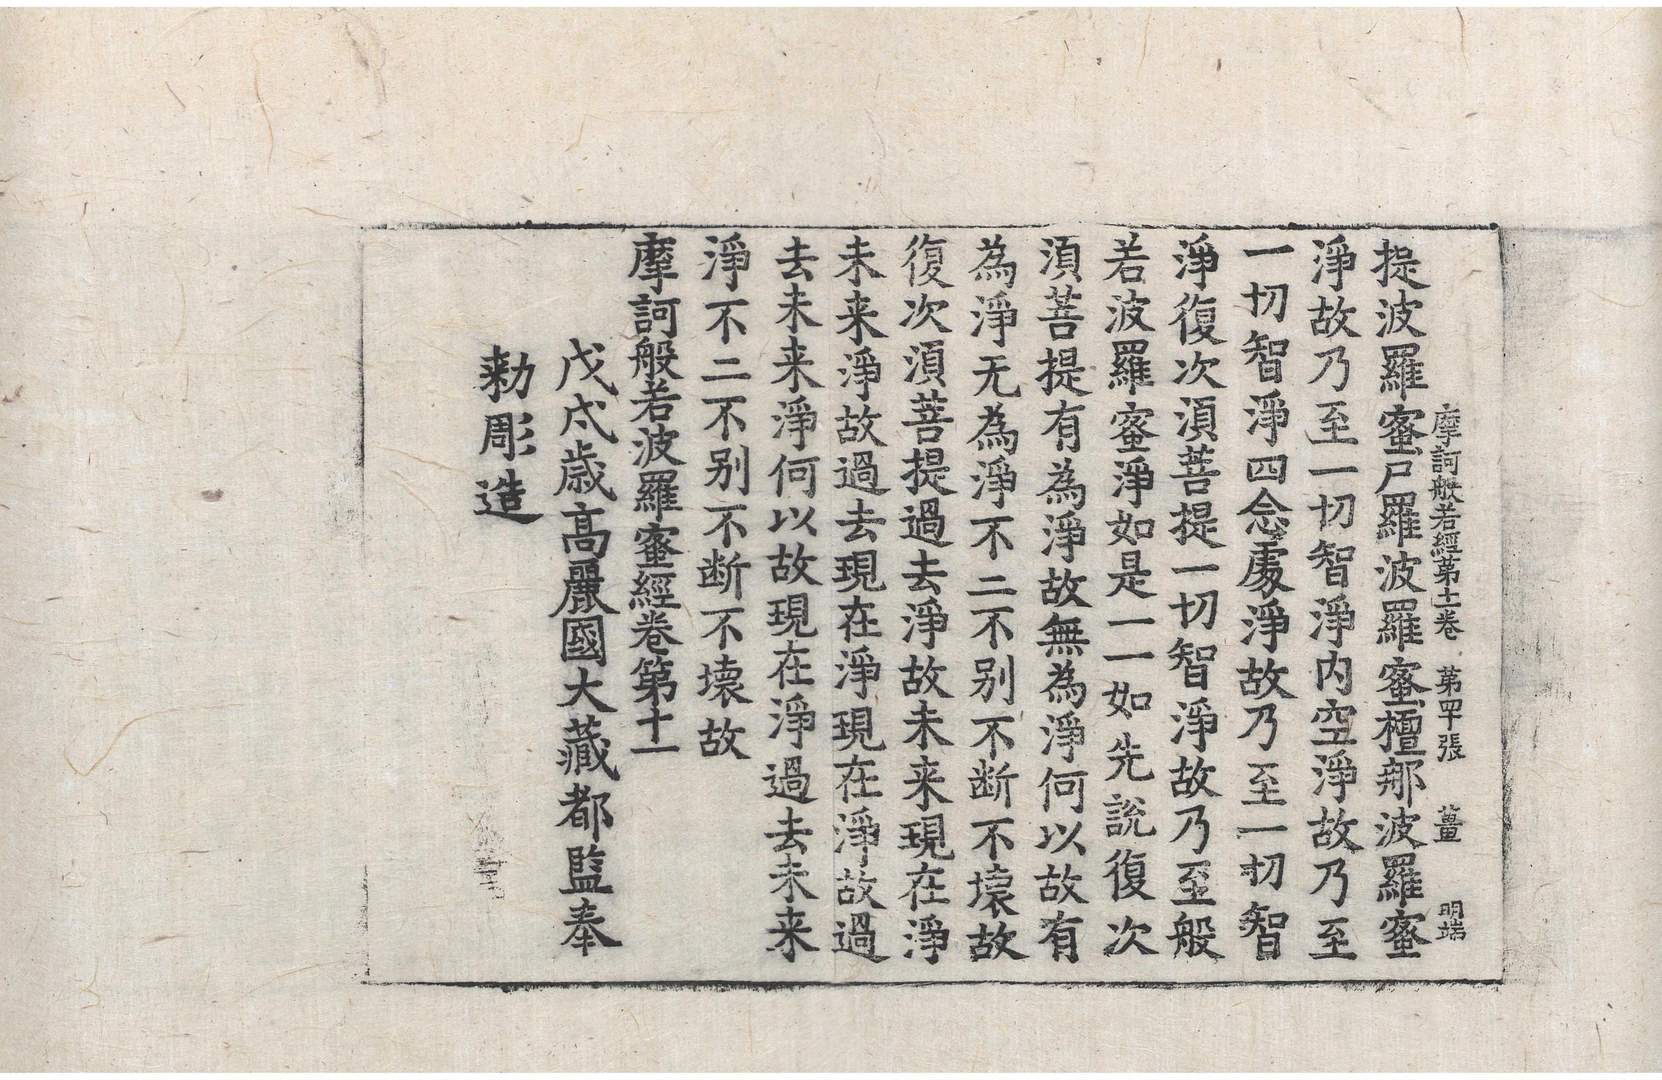 摩訶般若經第十一卷　第四十張　薑　明端
提波羅蜜尸羅波羅蜜檀那波羅蜜
淨故乃至一切智淨内空淨故乃至
一切智淨四念處淨故乃至一切智
淨復次湏菩提一切智淨故乃至般
若波羅蜜淨如是一一如先說復次
湏菩提有為淨故無為淨何以故有
為淨无為淨不二不别不断不壞故
復次湏菩提過去淨故未来現在淨
未来淨故過去現在淨現在淨故過
去未来淨何以故現在淨過去未来
淨不二不别不断不壞故
摩訶般若波羅蜜經卷第十一
戊戌歳高麗國大藏都監奉
勑彫造